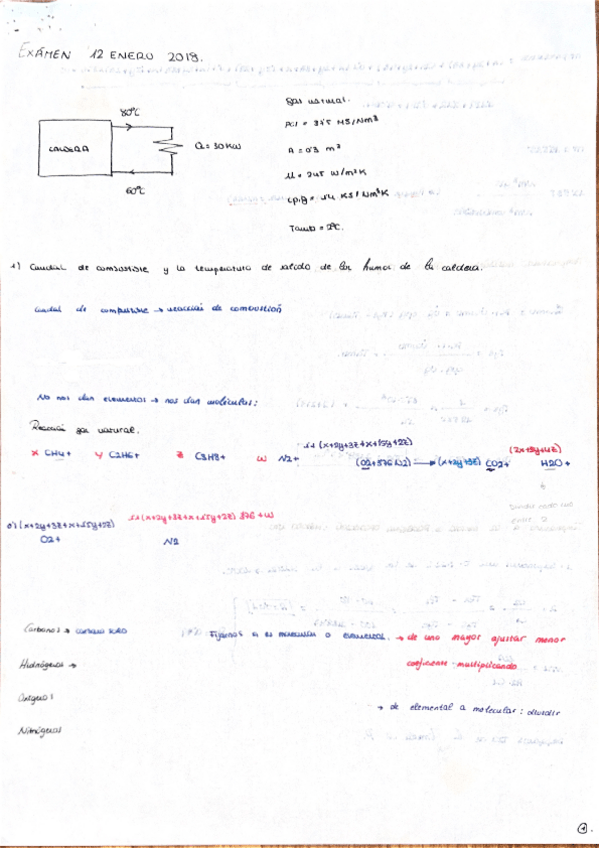 EXÁMEN 12 ENERO 2018.
gas natural.
80ºC
PCI = 37'5 MJ/Nm³
CALDERA
Q = 30 KW
A = 0'3 m²
60ºC
U = 245 W/m²K
cp,g = 1'4 KJ/Nm³K
Tamb = 2ºC.
1) Caudal de combustible y la temperatura de salida de los humos de la caldera.
caudal de combustible → reacción de combustión
No nos dan elementos → nos dan moléculas:
Reacción gas natural.
1'1 (x+2y+3z+x+1'5y+2z) (2x+3y+4z)
x CH4 + y C2H6 + z C3H8 + w N2 + (O2 + 3'76 N2) → (x+2y+3z) CO2 + H2O +
0'1 (x+2y+3z+x+1'5y+2z) 1'1 (x+2y+3z+x+1'5y+2z) 3'76 + w
O2 + N2
Carbono → carbono
Fijarnos si es molecular o elemental. → de uno mayor ajustar menor
Hidrógenos → coeficiente - multiplicando
Oxígeno:
→ de elemental a molecular: dividir
Nitrógenos
1.